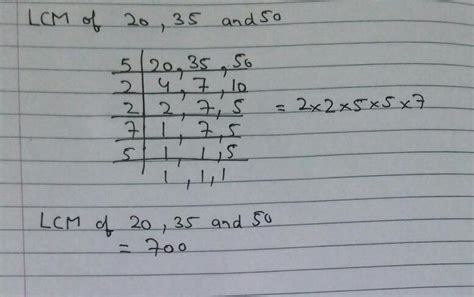 LCM of 20, 35 and 50
5 | 20, 35, 50
2 | 4, 7, 10
2 | 2, 7, 5 = 2×2×5×5×7
7 | 1, 7, 5
5 | 1, 1, 5
1, 1, 1
LCM of 20, 35 and 50
= 700